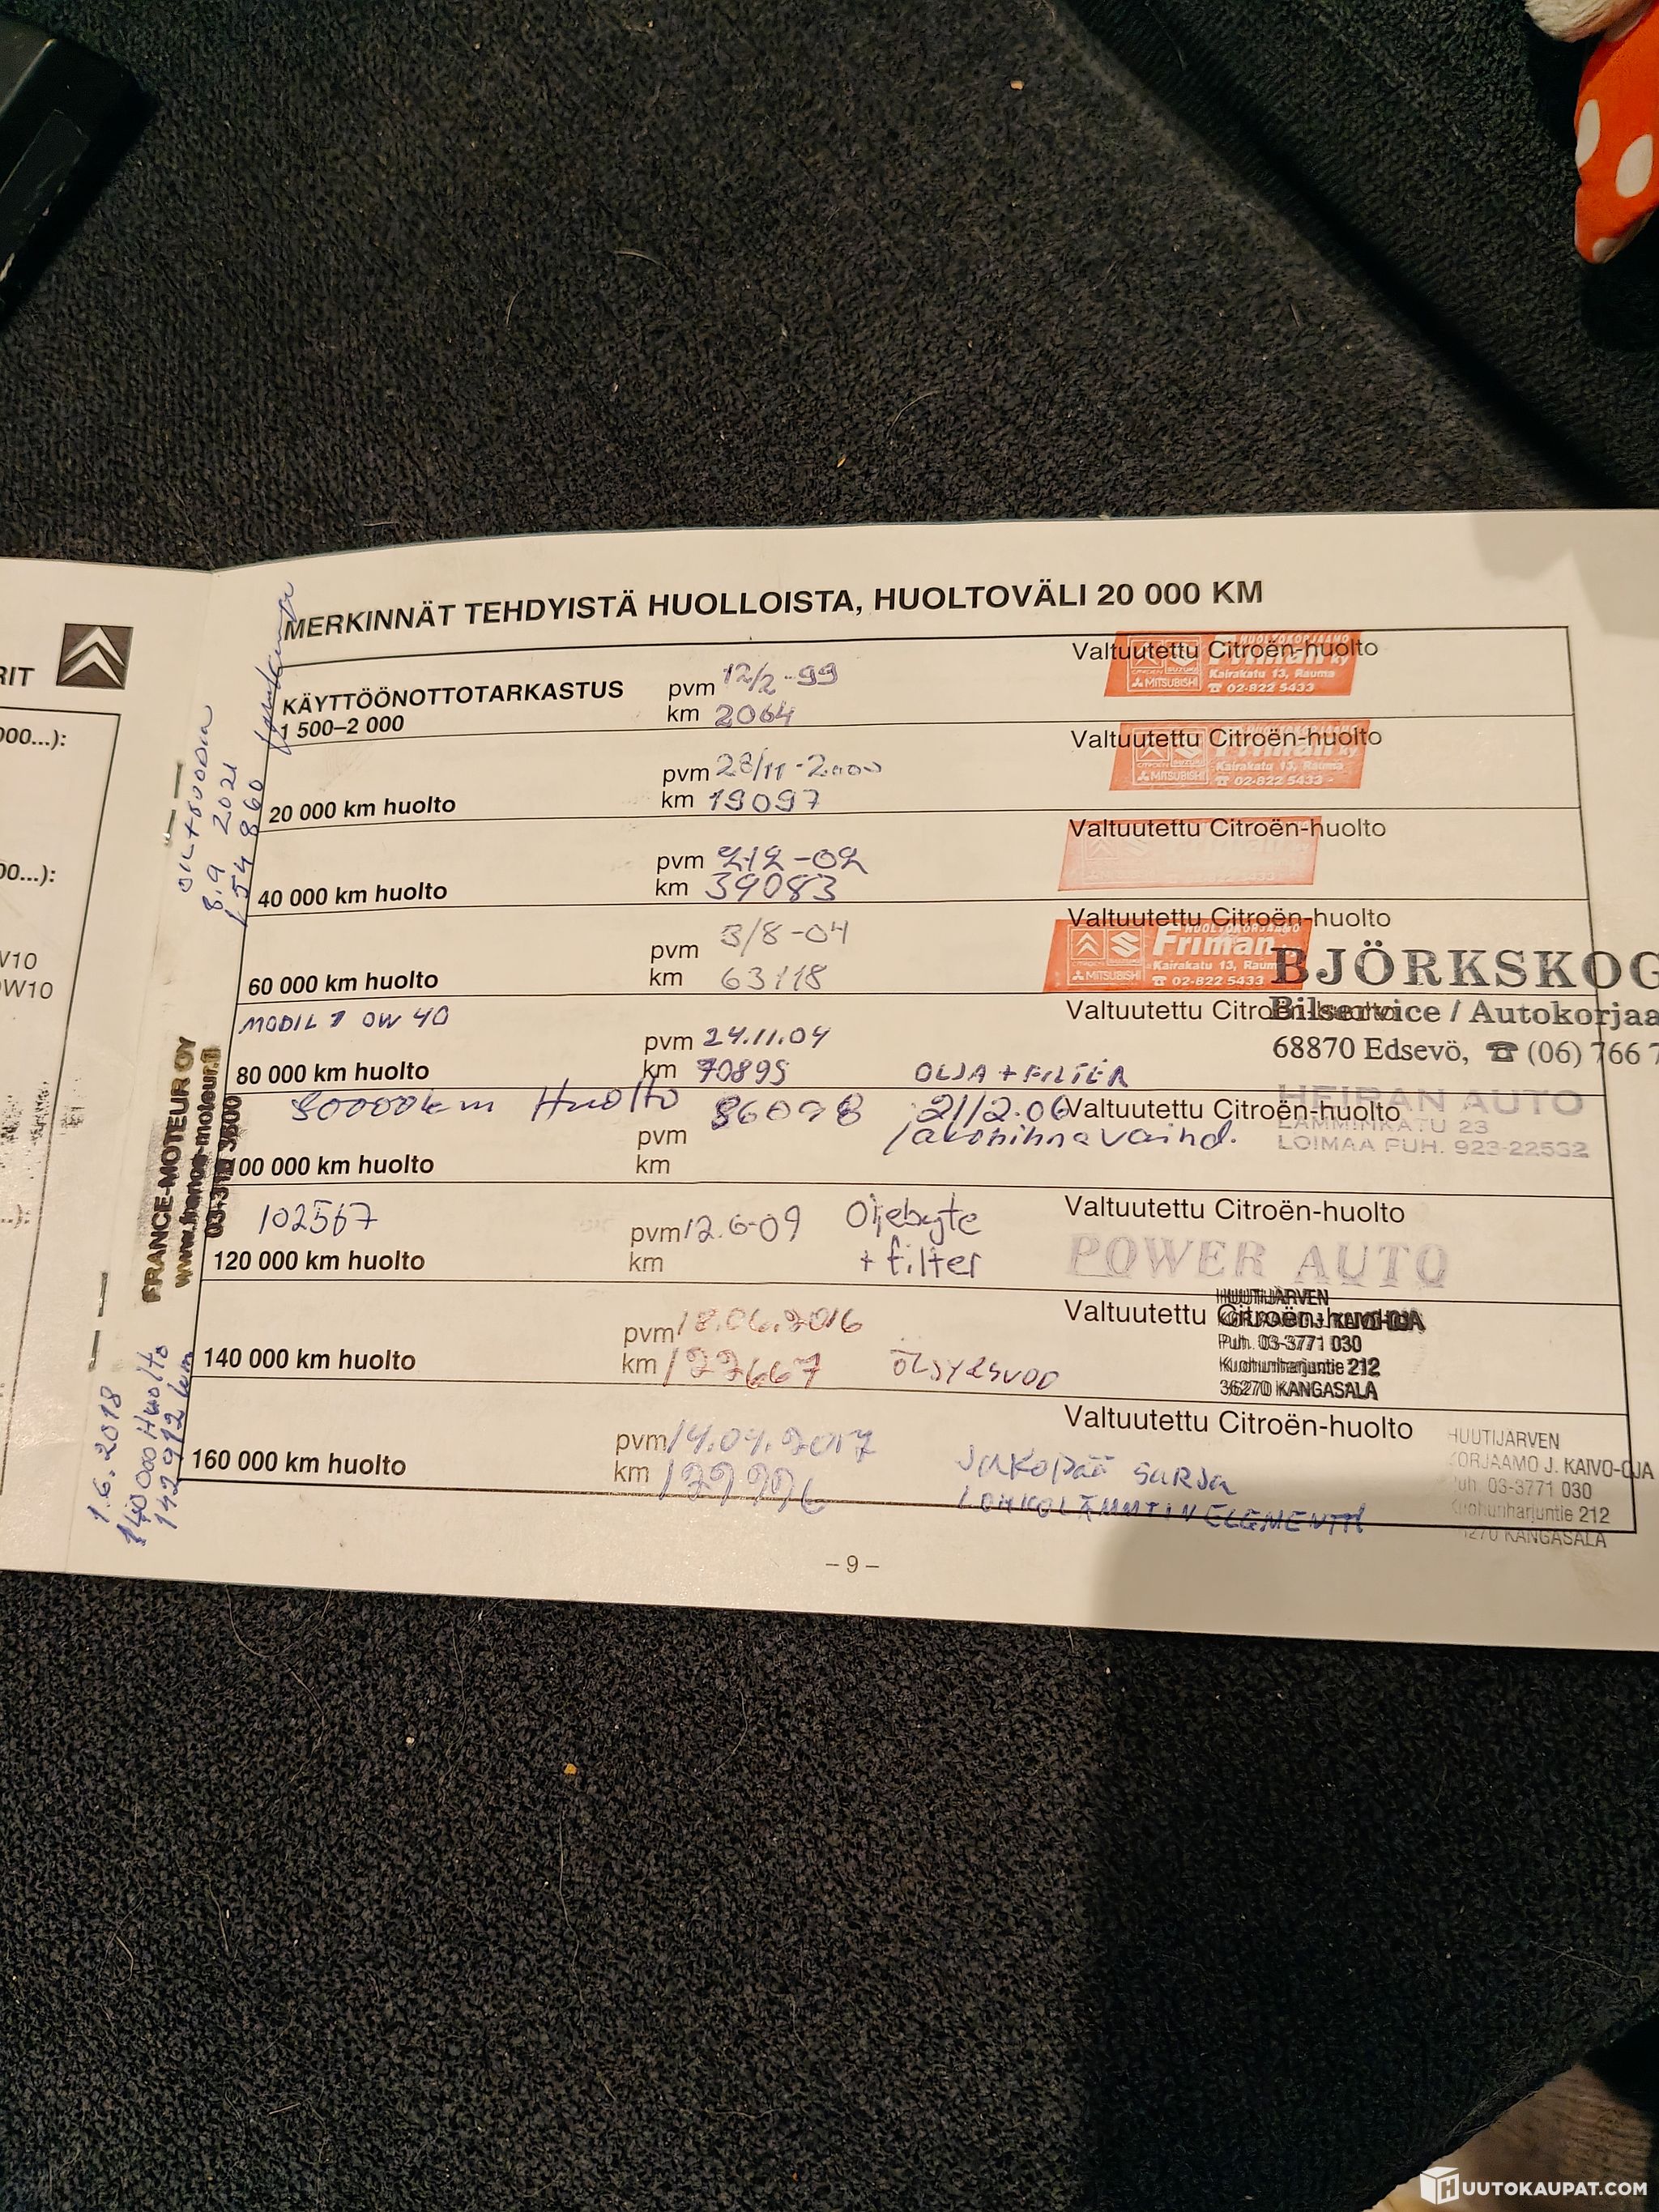 RIT
000...):
00...):
W10
0W10
MERKINNÄT TEHDYISTÄ HUOLLOISTA, HUOLTOVÄLI 20 000 KM
KÄYTTÖÖNOTTOTARKASTUS
1 500–2 000
pvm 12/2-99
km 2064
Valtuutettu Citroën-huolto
HUOLTOKORJAAMO
Friman ky
CITROËN SUZUKI
MITSUBISHI
Kairakatu 13, Rauma
☎ 02-822 5433
20 000 km huolto
pvm 28/11-2000
km 19097
Valtuutettu Citroën-huolto
Friman ky
MITSUBISHI
Kairakatu 13, Rauma
☎ 02-822 5433
40 000 km huolto
pvm 2/2-02
km 39083
Valtuutettu Citroën-huolto
60 000 km huolto
pvm 3/8-04
km 63118
Valtuutettu Citroën-huolto
HUOLTOKORJAAMO
Friman
MITSUBISHI
Kairakatu 13, Rauma
☎ 02-822 5433
MOBIL 1 0W 40
80 000 km huolto
pvm 24.11.04
km 70895
OLJA + FILTER
Valtuutettu Citroën-huolto
BJÖRKSKOG
Bilservice / Autokorjaa
68870 Edsevö, ☎ (06) 766 7
80000km Huolto 86098 21/2.06
jakohihna vaihd.
100 000 km huolto
pvm
km
Valtuutettu Citroën-huolto
HEIRAN AUTO
LAMMINKATU 23
LOIMAA PUH. 923-22532
102567
120 000 km huolto
pvm 12.6-09
km
Oljebyte
+ filter
Valtuutettu Citroën-huolto
POWER AUTO
140 000 km huolto
pvm 18.06.2016
km 127667
ÖLJYJSVOD
Valtuutettu Citroën-huolto
HUUTIJÄRVEN
KORJAAMO J. KAIVO-OJA
Puh. 03-3771 030
Kuohunharjuntie 212
36270 KANGASALA
160 000 km huolto
pvm 14.04.2017
km
JAKOPÄÄ SARJA
LOHKOLÄMMITIN ELEMENTTI
Valtuutettu Citroën-huolto
HUUTIJÄRVEN
KORJAAMO J. KAIVO-OJA
Puh. 03-3771 030
Kuohunharjuntie 212
36270 KANGASALA
– 9 –
8.9 2021
154 860
FRANCE-MOTEUR OY
www.france-moteur.fi
1.6.2018
140 000 Huolto
142 912 km
HUUTOKAUPAT.COM